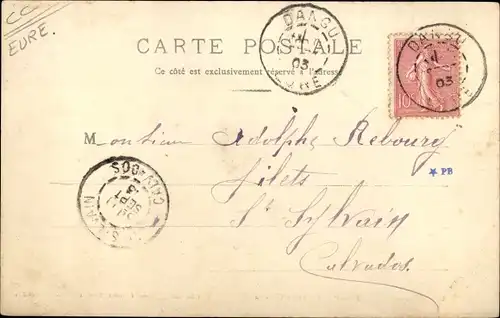 EURE.
CARTE POSTALE
Ce côté est exclusivement réservé à l'adresse
DANGU
03
EURE
DANGU
03
10
Monsieur Adolphe Rebourg
Filets
St Sylvain
Calvados.
★ PB
CALVADOS